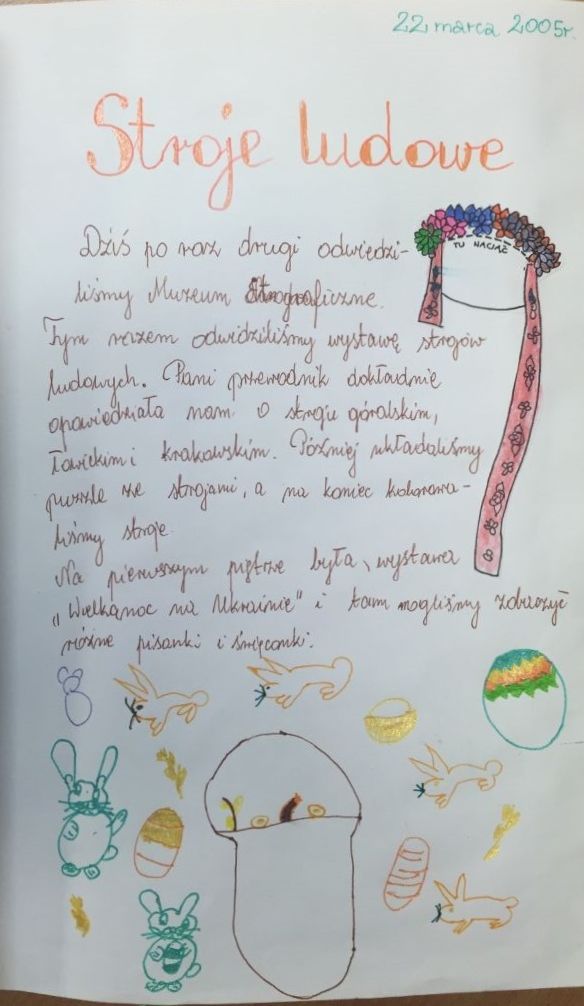 22 marca 2005r.
Stroje ludowe
TU NACIĄĆ
Dziś po raz drugi odwiedzi-
liśmy Muzeum Etnograficzne.
Tym razem odwidziliśmy wystawę strojów
ludowych. Pani przewodnik dokładnie
opowiedziała nam o stroju góralskim,
łowickim i krakowskim. Później układaliśmy
puzzle ze strojami, a na koniec kolorowa-
liśmy stroje.
Na pierwszym piętrze była wystawa
"Wielkanoc na Ukrainie" i tam mogliśmy zobaczyć
różne pisanki i święconki.